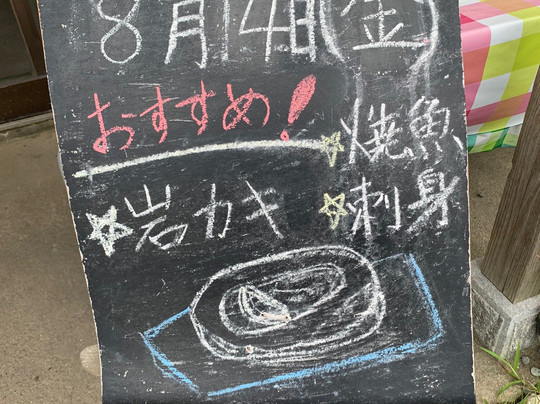 8月14日(金)
おすすめ!
☆焼魚
☆岩カキ
☆刺身